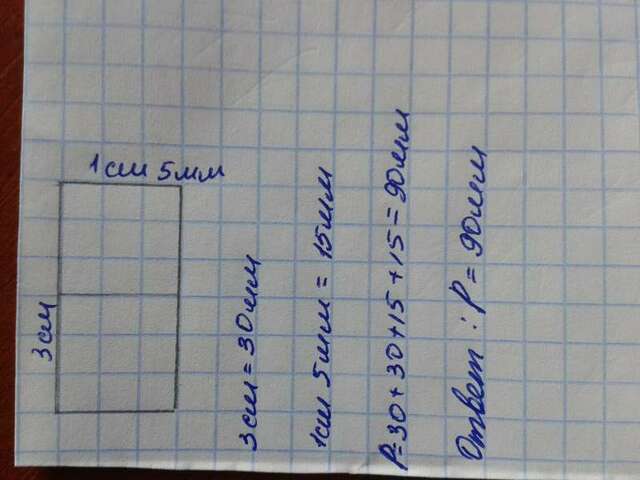 1см 5мм
3см
3см = 30мм
1см 5мм = 15мм
P=30+30+15+15=90мм
Ответ: P=90мм